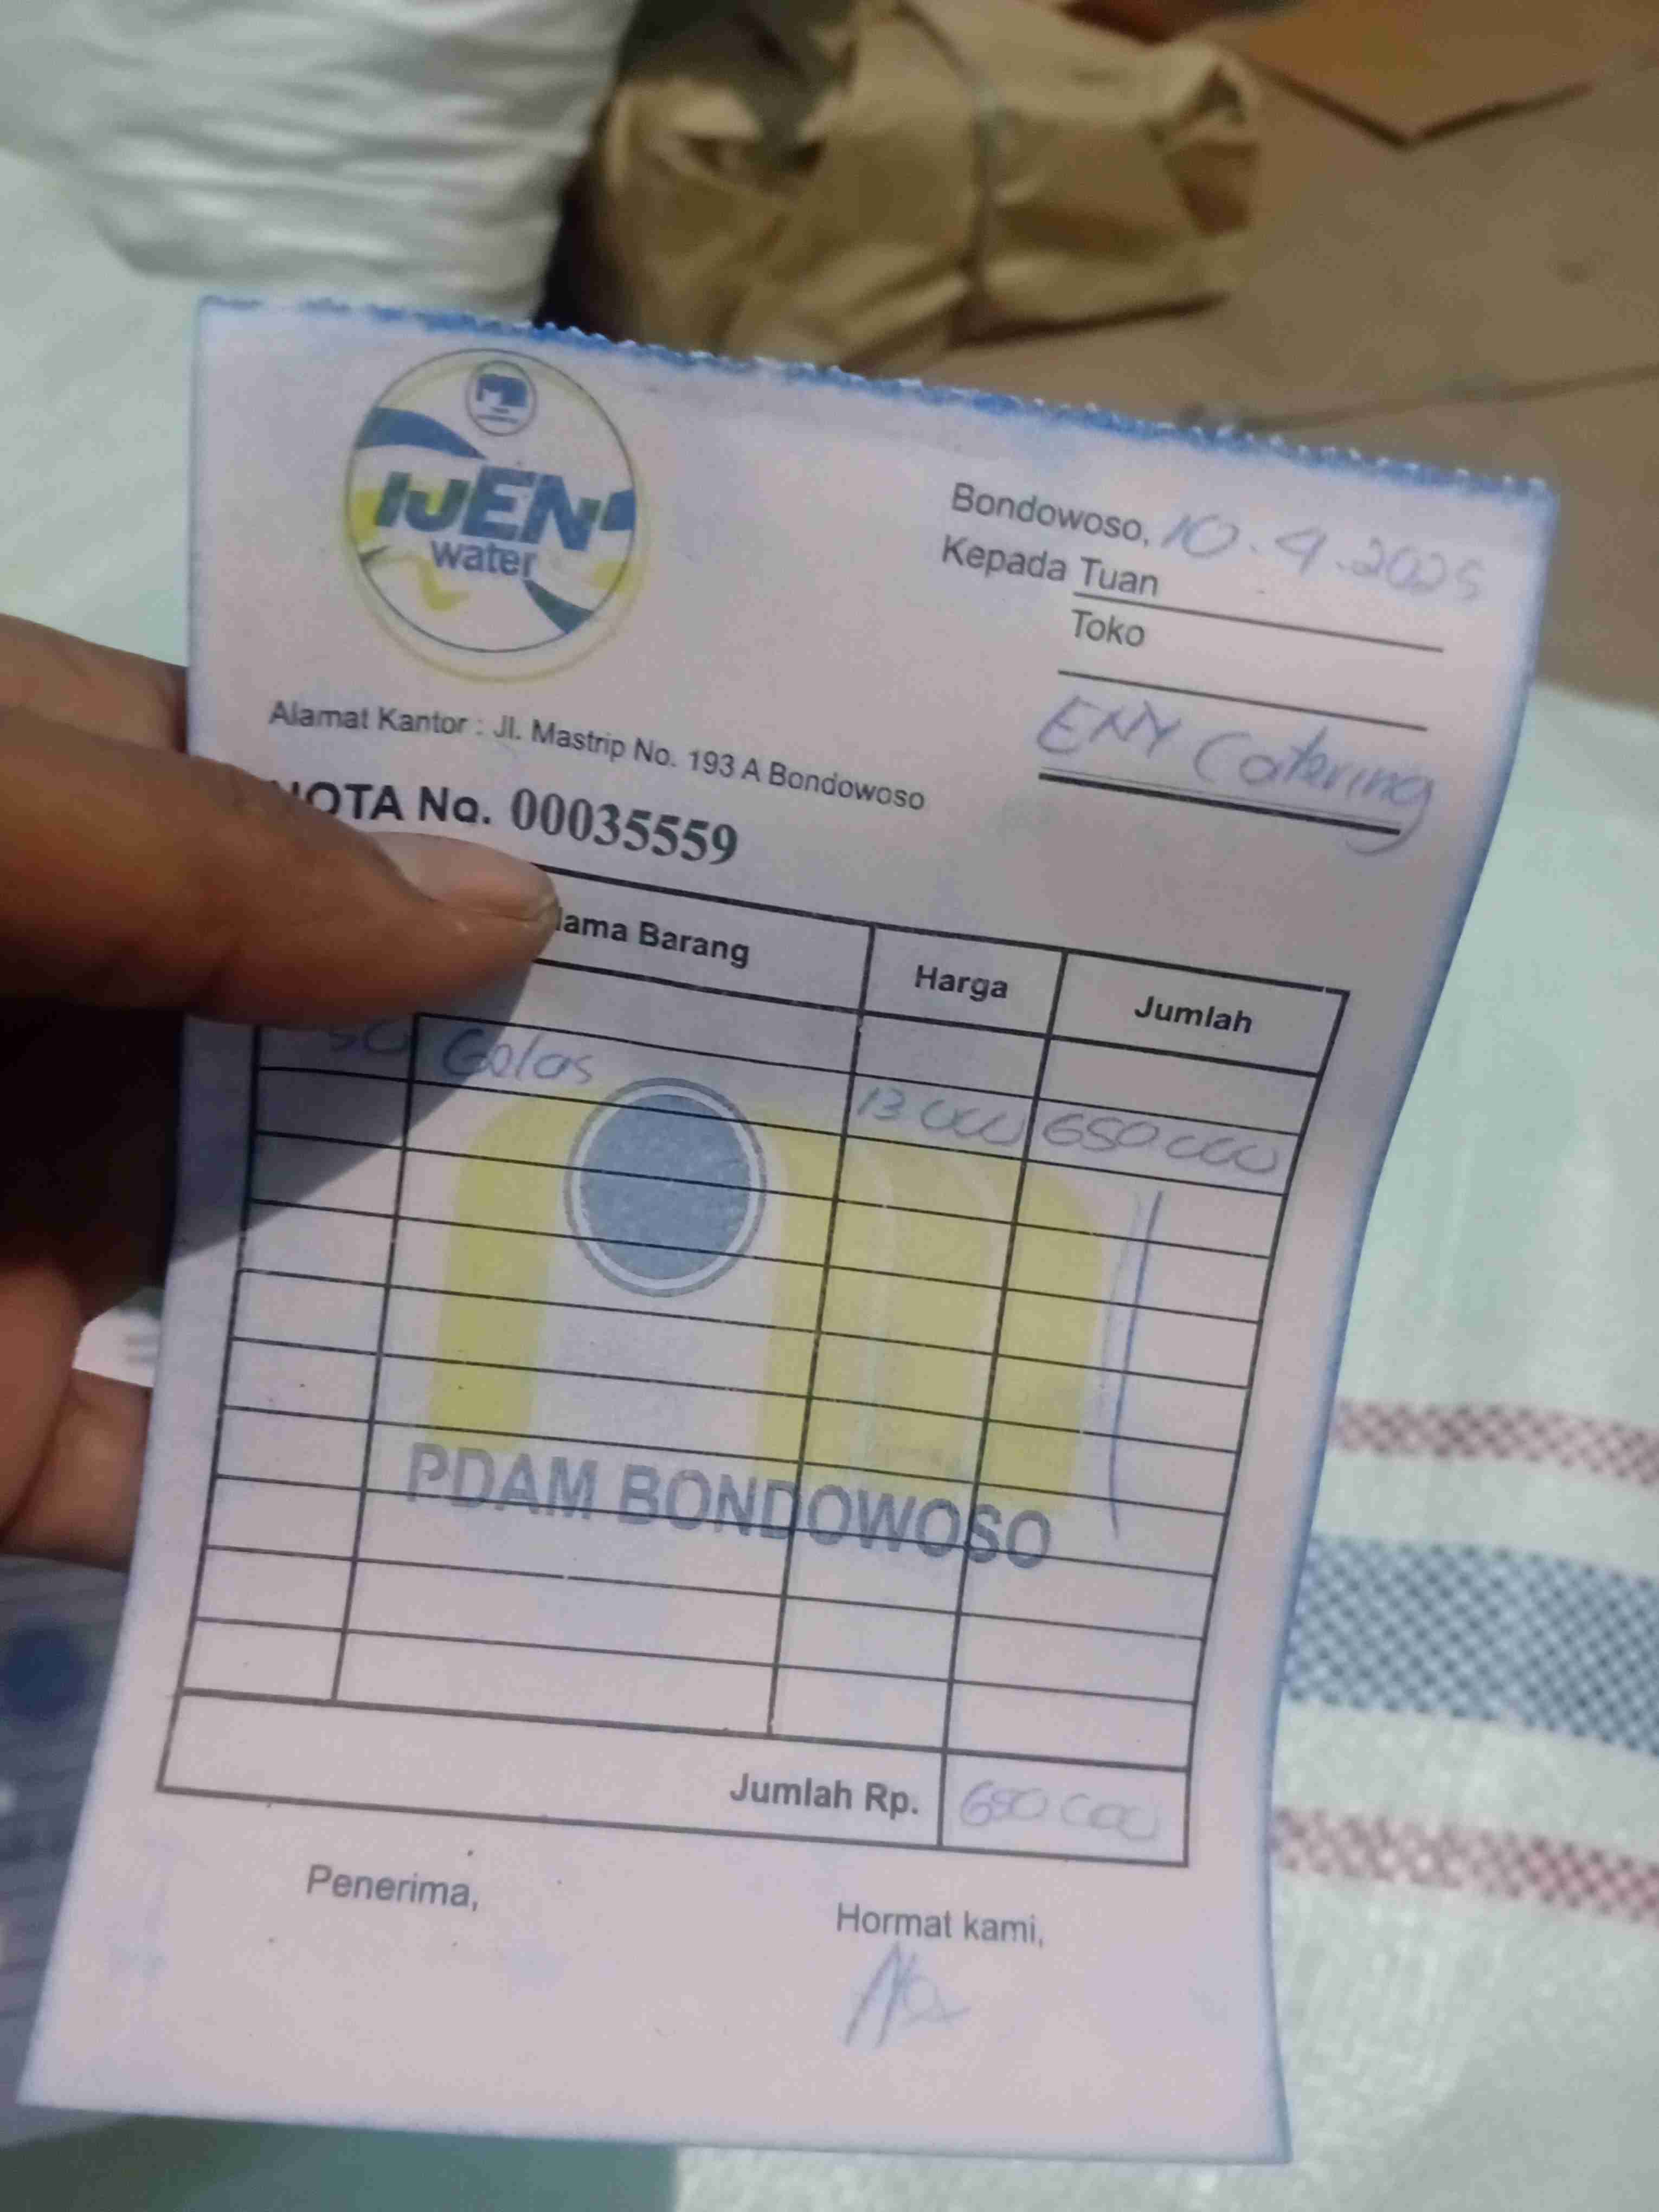 IJEN
water
Bondowoso, 10.9.2025
Kepada Tuan
Toko
ENY Catering
Alamat Kantor : Jl. Mastrip No. 193 A Bondowoso
NOTA No. 00035559
Nama Barang Harga Jumlah
50 Gelas 13 000 650 000
PDAM BONDOWOSO
Jumlah Rp. 650 000
Penerima,
Hormat kami,